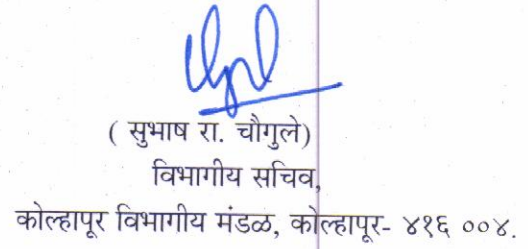 ( सुभाष रा. चौगुले)
विभागीय सचिव,
कोल्हापूर विभागीय मंडळ, कोल्हापूर- ४१६ ००४.